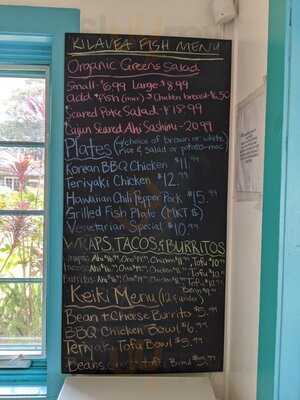 KILAUEA FISH MENU
Organic Greens Salad
Small - $6.99 Large $8.99
add $ Fish (mkt) $ Chicken breast $6.50
Seared Poke Salad - $15.99
Cajun Seared Ahi Sashimi - 20.99
Plates (w/choice of brown or white rice & salad or potato-mac
Korean BBQ Chicken $11.99
Teriyaki Chicken $12.99
Hawaiian Chili Pepper Pork $15.99
Grilled Fish Plate (MKT $)
Vegetarian Special $10.99
WRAPS, TACOS & BURRITOS
Wraps: Ahi Ono Chicken Tofu
Tacos: Ahi Ono Chicken Tofu
Burritos: Ahi Ono Chicken Tofu
Bean
Keiki Menu (12 & under)
Bean & Cheese Burrito $5.99
BBQ Chicken Bowl $6.99
Teriyaki Tofu Bowl $5.99
Beans